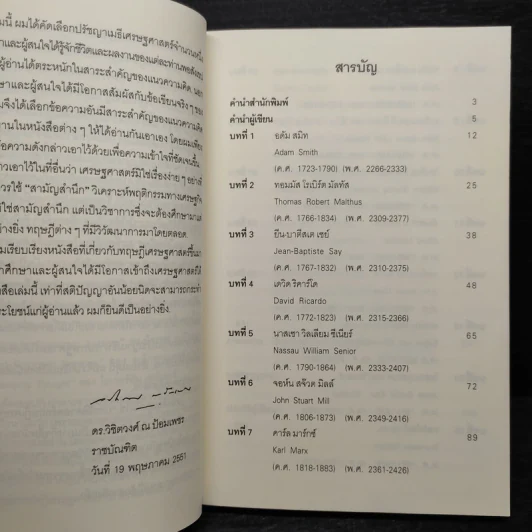 มนี้ ผมได้คัดเลือกปรัชญาเมธีเศรษฐศาสตร์จำนวนหนึ่ง
าและผู้สนใจได้รู้จักชีวิตและผลงานของแต่ละท่านพอสังเขป
ผู้อ่านได้ตระหนักในสาระสำคัญของแนวความคิด
าและผู้สนใจได้มีโอกาสสัมผัสกับข้อเขียนจริงๆ
มจึงได้เลือกข้อความอันมีสาระสำคัญของแนวความคิด
านในหนังสือต่าง ๆ ให้ได้อ่านกันเอาเอง โดยผมเพียง
อความดังกล่าวเอาไว้ด้วยเพื่อความเข้าใจที่ชัดเจนขึ้น
าวเอาไว้ในที่อื่นว่า เศรษฐศาสตร์มิใช่เรื่องง่ายๆ อย่างที่
วรใช้ "สามัญสำนึก" วิเคราะห์พฤติกรรมทางเศรษฐกิจ
มิใช่สามัญสำนึก แต่เป็นวิชาการซึ่งจะต้องศึกษามา
างยิ่ง ทฤษฎีต่าง ๆ ที่มีวิวัฒนาการมาโดยตลอด
มเรียบเรียงหนังสือที่เกี่ยวกับทฤษฎีเศรษฐศาสตร์ขึ้นมา
าศึกษาและผู้สนใจได้มีโอกาสเข้าถึงเศรษฐศาสตร์ได้
สือเล่มนี้ เท่าที่สติปัญญาอันน้อยนิดจะสามารถกระทำ
ระโยชน์แก่ผู้อ่านแล้ว ผมก็ยินดีเป็นอย่างยิ่ง
ดร.วิชิตวงศ์ ณ ป้อมเพชร
ราชบัณฑิต
วันที่ 19 พฤษภาคม 2551
สารบัญ
คำนำสำนักพิมพ์ 3
คำนำผู้เขียน 5
บทที่ 1 อดัม สมิท 12
Adam Smith
(ค.ศ. 1723-1790) (พ.ศ. 2266-2333)
บทที่ 2 ทอมมัส โรเบิร์ต มัลทัส 25
Thomas Robert Malthus
(ค.ศ. 1766-1834) (พ.ศ. 2309-2377)
บทที่ 3 ยีน-บาตีสเต เซย์ 38
Jean-Baptiste Say
(ค.ศ. 1767-1832) (พ.ศ. 2310-2375)
บทที่ 4 เดวิด ริคาร์โด 48
David Ricardo
(ค.ศ. 1772-1823) (พ.ศ. 2315-2366)
บทที่ 5 นาสเซา วิลเลียม ซีเนียร์ 65
Nassau William Senior
(ค.ศ. 1790-1864) (พ.ศ. 2333-2407)
บทที่ 6 จอห์น สจ๊วต มิลล์ 72
John Stuart Mill
(ค.ศ. 1806-1873) (พ.ศ. 2349-2416)
บทที่ 7 คาร์ล มาร์กซ์ 89
Karl Marx
(ค.ศ. 1818-1883) (พ.ศ. 2361-2426)